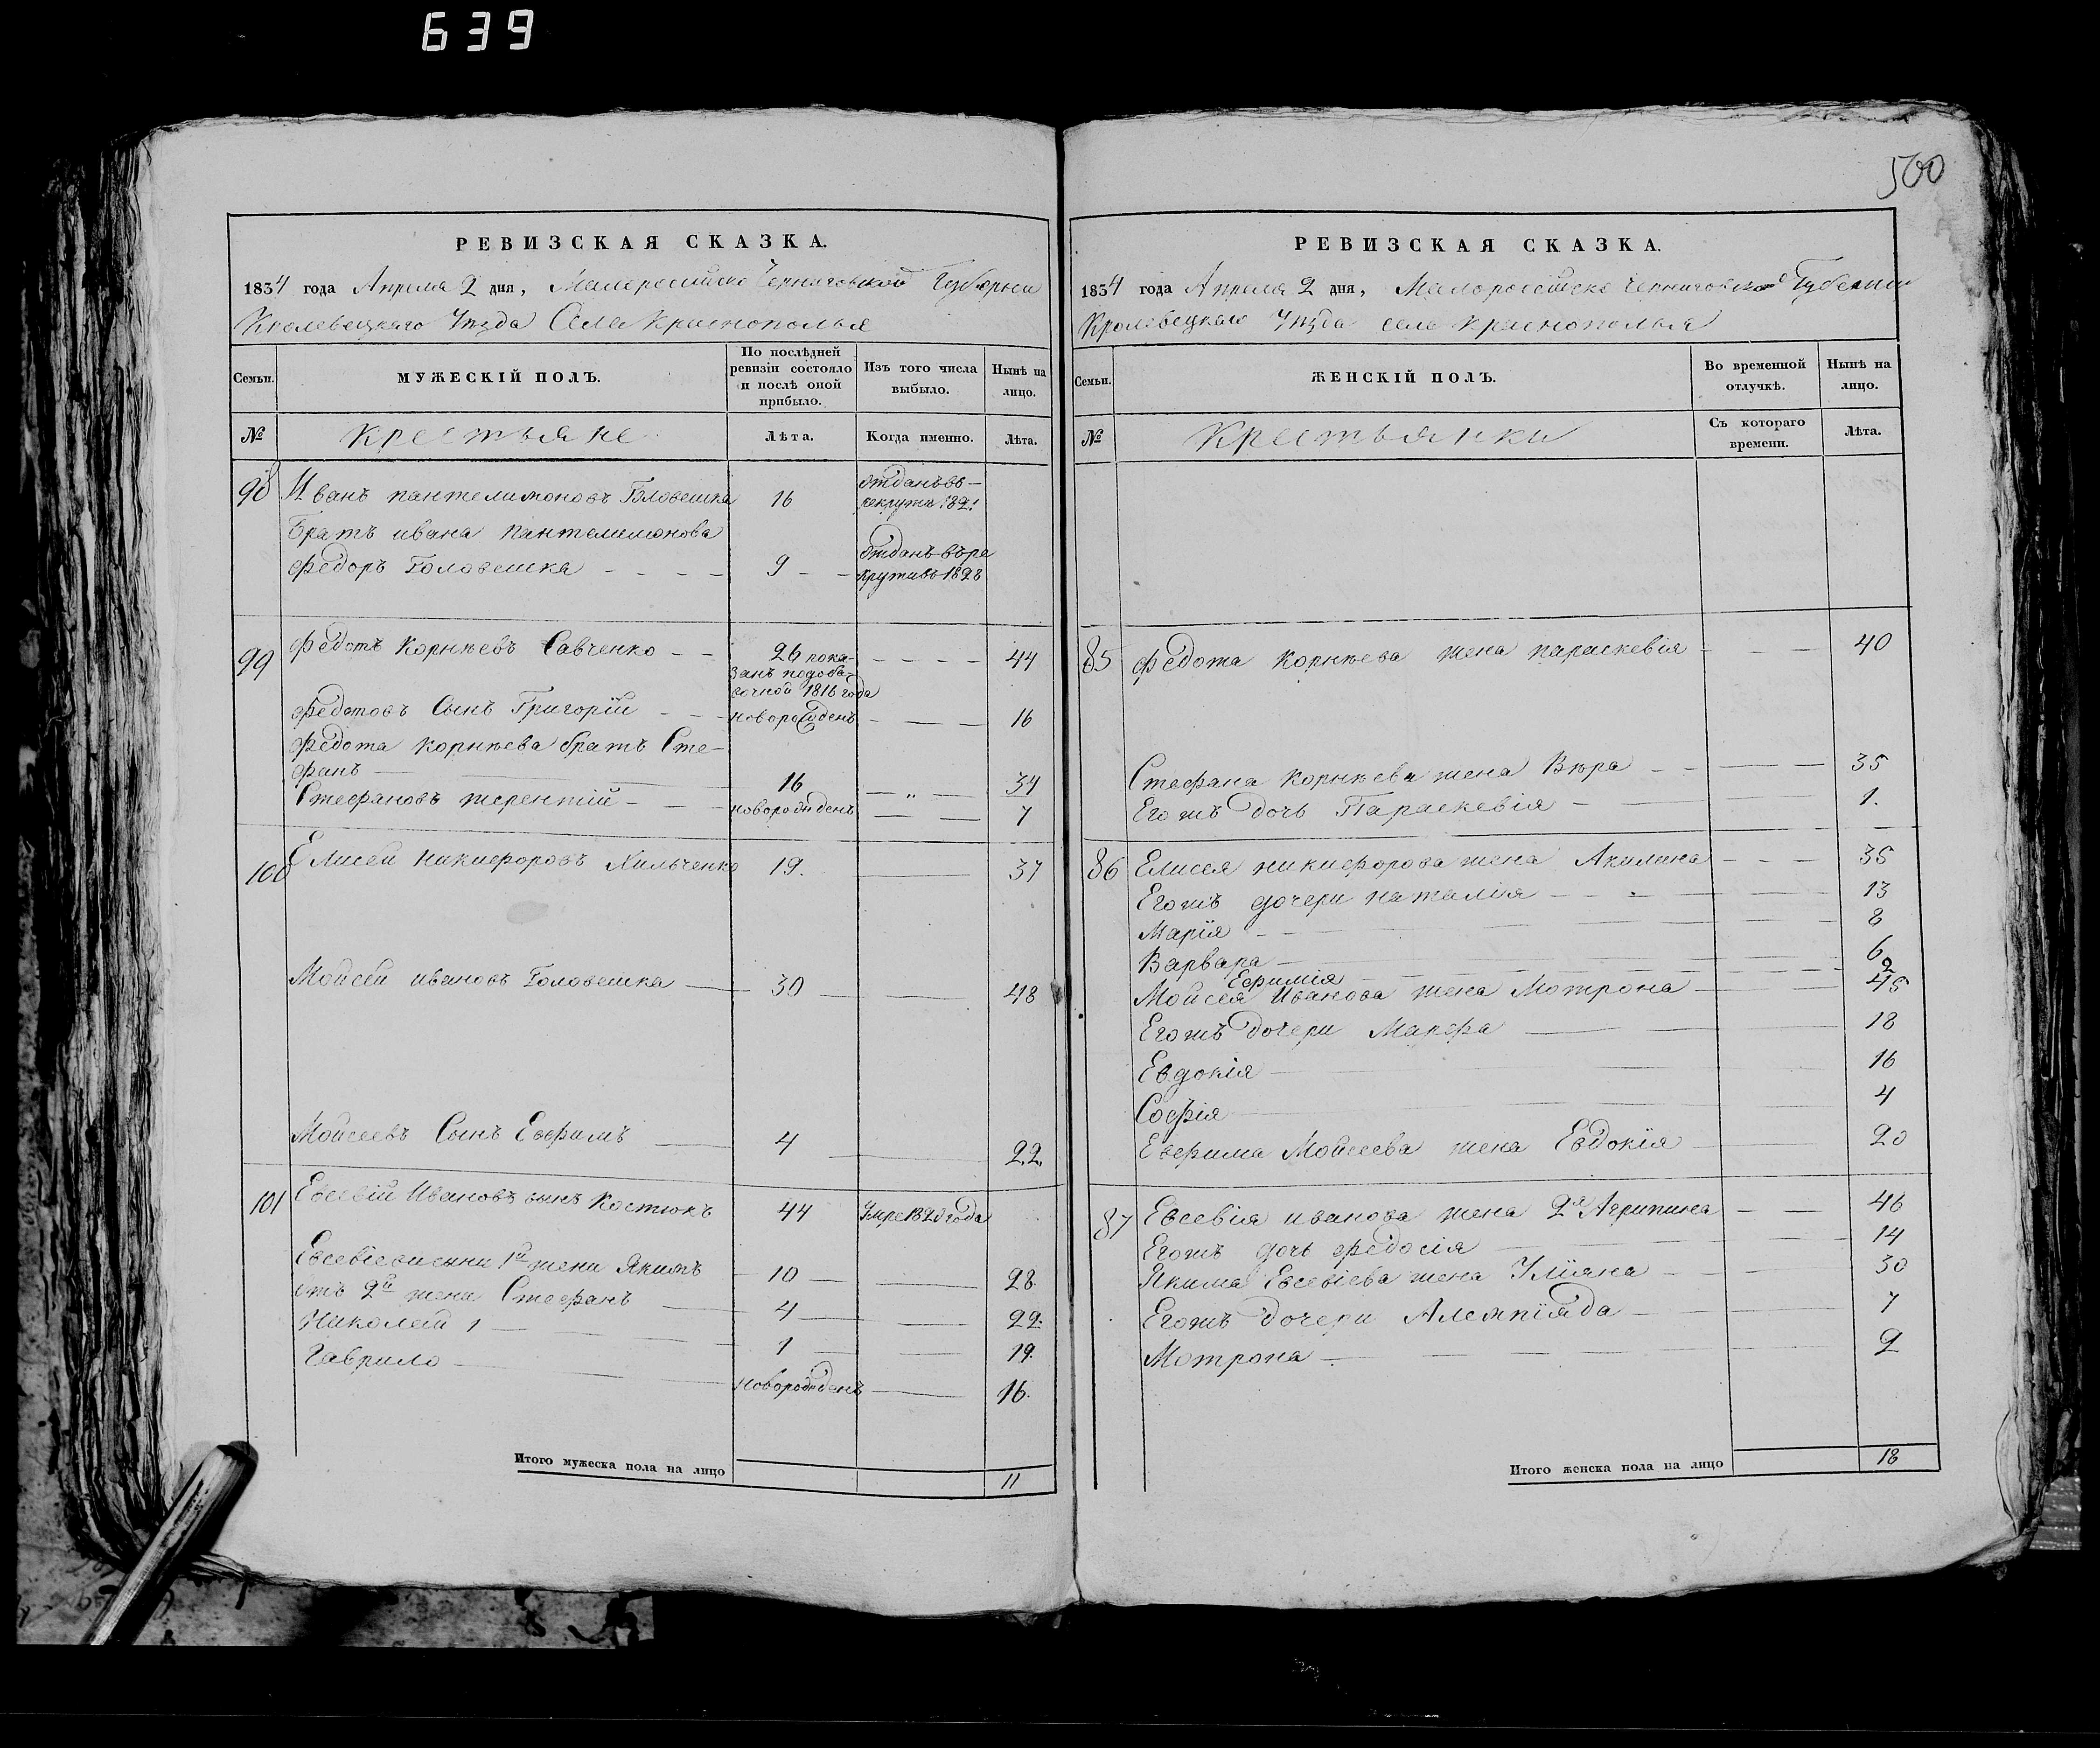 639
500
РЕВИЗСКАЯ СКАЗКА.
1834 года Апреля 2 дня, Малоросийско Черниговской Губернии
Кролевецкаго Уѣзда Села Краснополья
Семьи.
МУЖЕСКІЙ ПОЛЪ.
По послѣдней ревизіи состояло и послѣ оной прибыло.
Изъ того числа выбыло.
Нынѣ на лицо.
№ Крестьяне Лѣта. Когда именно. Лѣта.
98 Иванъ пантелимоновъ Головешка 16 отданъ въ рекруты 1821
Братъ ивана Пантелимонова
Федоръ Головешка 9 отданъ въ рекруты въ 1828
99 Федотъ Корнѣевъ Савченко 26 показанъ подобавочной 1816 года 44
Федотовъ Сынъ Григорій новорожденъ 16
Федота корнѣева братъ Сте-
фанъ 16 34
Стефановъ терентій новорожденъ 7
100 Елисей Никифоровъ Хильченко 19. 37
Мойсей ивановъ Головешка 30 48
Мойсеевъ Сынъ Евфимъ 4 22.
101 Евсевій Ивановъ сынъ Костюкъ 44 Умре 1820 года
Евсевіевы сыны 1й жены Якимъ 10 28.
отъ 2й жены Стефанъ 4 22.
Николай 1 1 19.
Гаврило новорожденъ 16.
Итого мужеска пола на лицо 11
РЕВИЗСКАЯ СКАЗКА.
1834 года Апреля 2 дня, Малоросейско Черниговской Губернии
Кролевецкаго Уѣзда села Краснополья
Семьи.
ЖЕНСКІЙ ПОЛЪ.
Во временной отлучкѣ.
Нынѣ на лицо.
№ Крестьянки Съ котораго времени. Лѣта.
85 Федота Корнѣева жена параскевія 40
Стефана Корнѣева жена Вѣра 35
Егожъ дочь Параскевія 1.
86 Елисея никифорова жена Акилина 35
Егожъ дочери наталія 13
Марія 8
Варвара 6
Евфимія 2
Мойсея Иванова жена Мотрона 45
Егожъ дочери Марфа 18
Евдокія 16
Софія 4
Евфима Мойсеева жена Евдокія 20
87 Евсевія иванова жена 2я Агрипина 46
Егожъ дочь федосія 14
Якима Евсевіева жена Уліяна 30
Егожъ дочери Алемпіяда 7
Мотрона 2
Итого женска пола на лицо 18